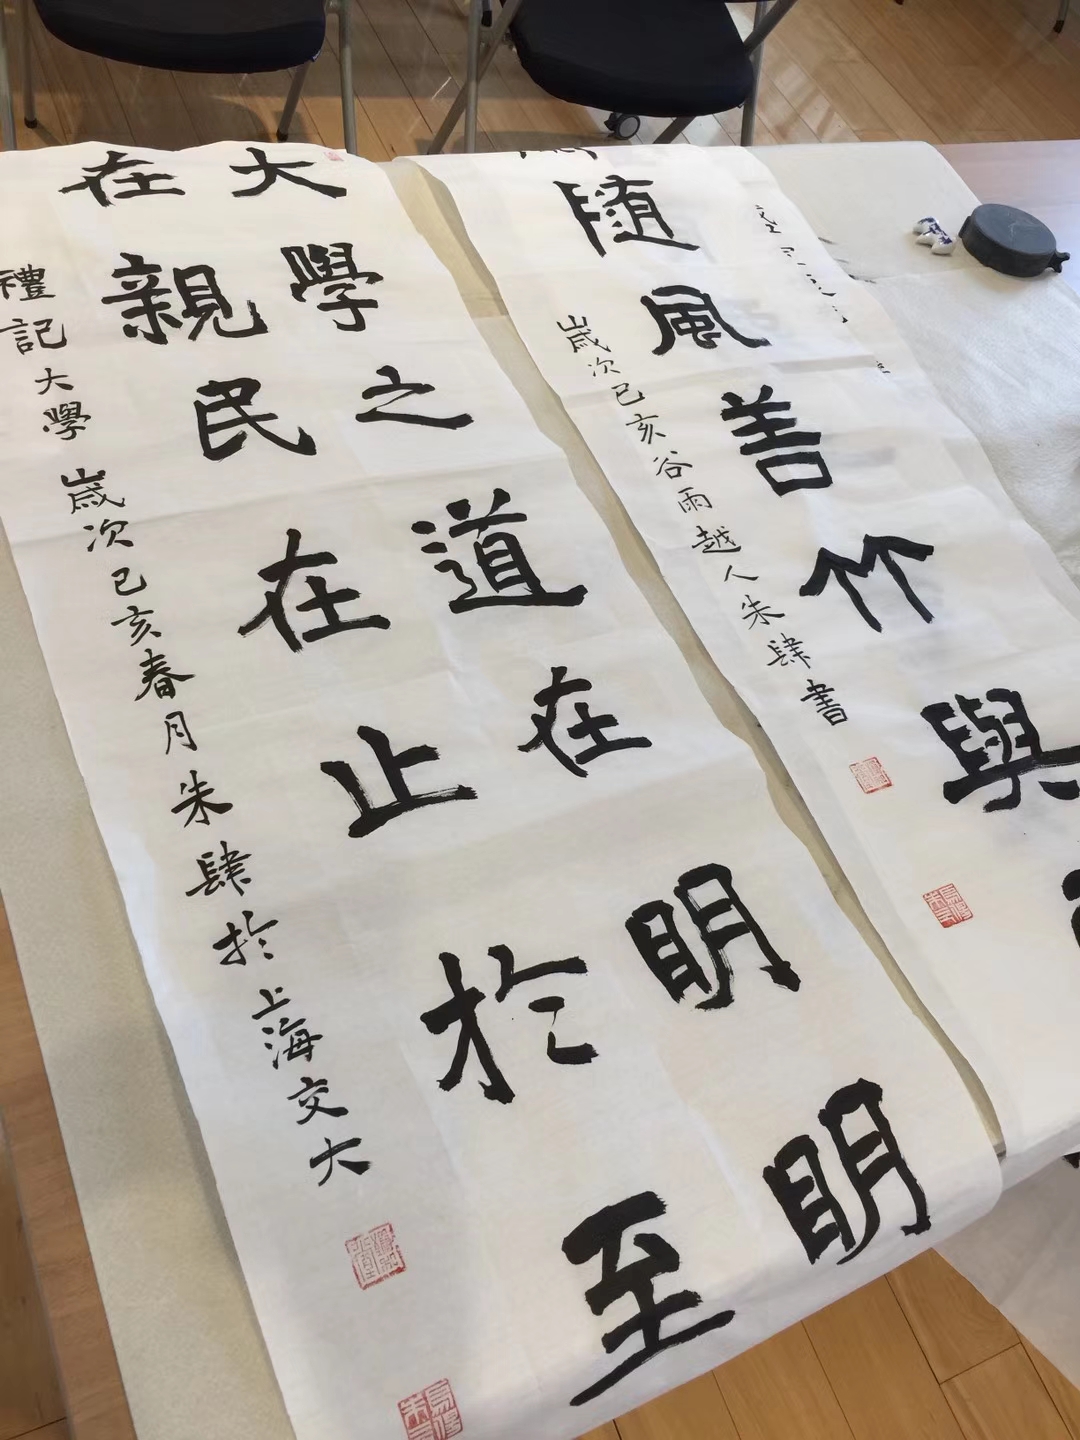 大學之道在明明
在親民在止於至
禮記大學 歲次己亥春月朱肆於上海交大
隨風善竹與
歲次己亥谷雨越人朱肆書